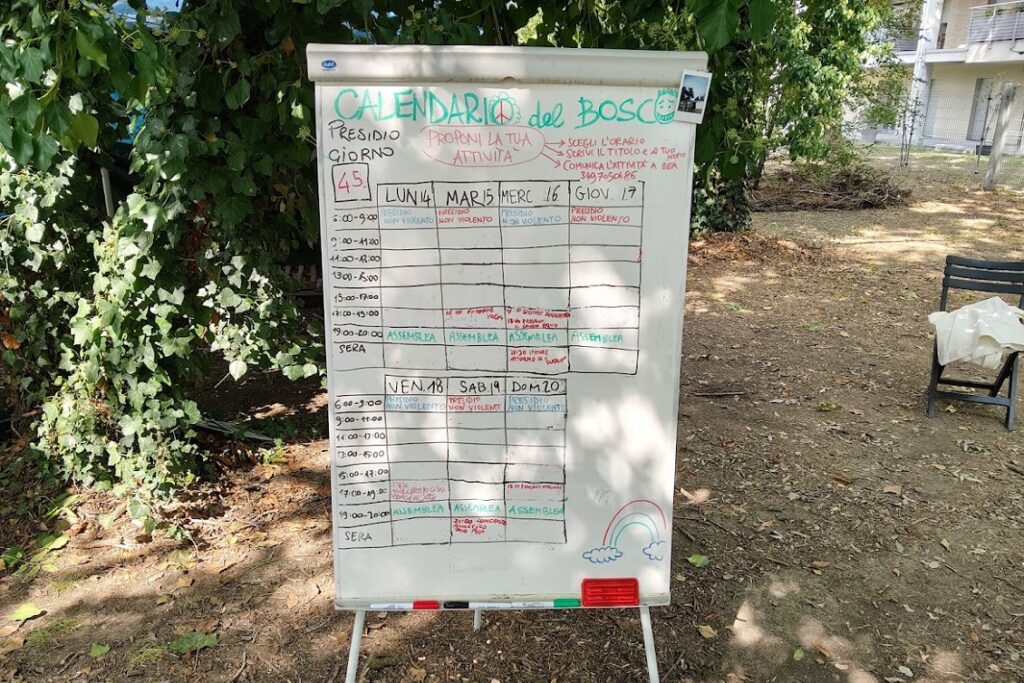 CALENDARIO del BOSCO
PRESIDIO
GIORNO
45.
PROPONI LA TUA
ATTIVITÀ
→ SCEGLI L'ORARIO
→ SCRIVI IL TITOLO E IL TUO NOME
→ COMUNICA L'ATTIVITÀ A BEA
3497050686
LUN14 MAR15 MERC 16 GIOV. 17
6:00-9:00 PRESIDIO PRESIDIO PRESIDIO PRESIDIO
NON VIOLENTO NON VIOLENTO NON VIOLENTO NON VIOLENTO
9:00-11:00
11:00-13:00
13:00-15:00
15:00-17:00
17:00-19:00
19:00-20:00 ASSEMBLEA ASSEMBLEA ASSEMBLEA ASSEMBLEA
SERA
VEN.18 SAB.19 DOM.20
6:00-9:00 PRESIDIO PRESIDIO PRESIDIO
NON VIOLENTO NON VIOLENTO NON VIOLENTO
9:00-11:00
11:00-13:00
13:00-15:00
15:00-17:00
17:00-19:00
19:00-20:00 ASSEMBLEA ASSEMBLEA ASSEMBLEA
SERA